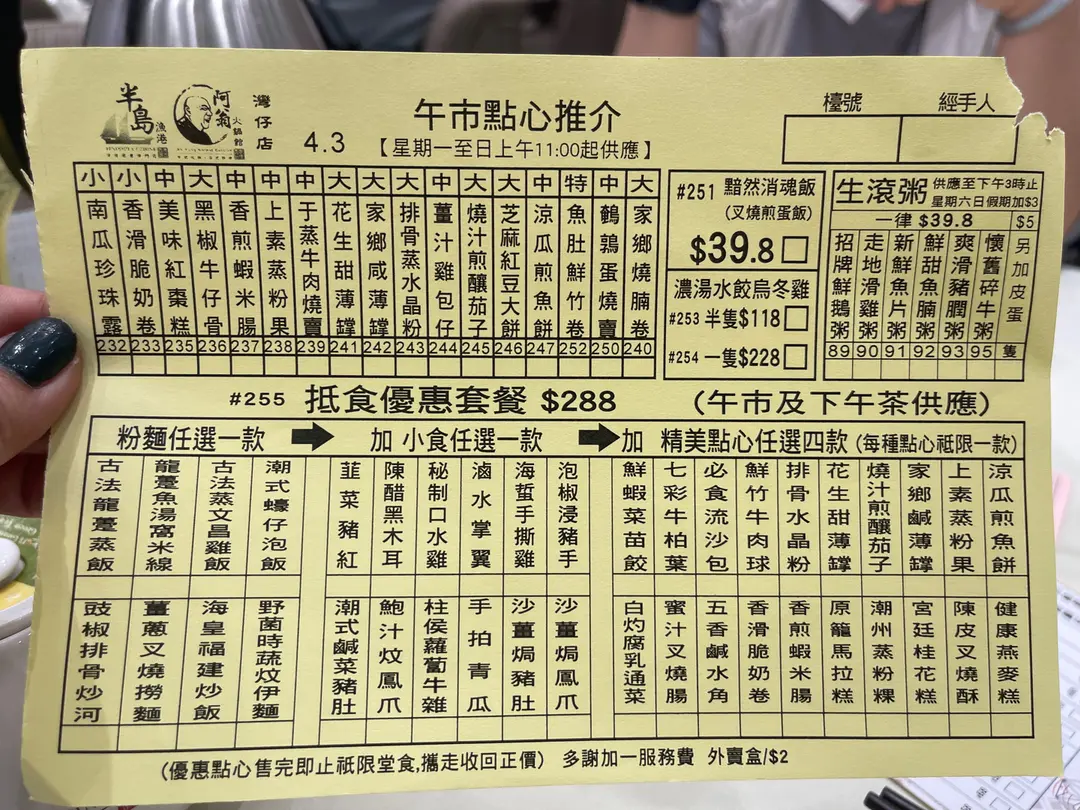 半島漁港
阿翁火鍋館
灣仔店
4.3
午市點心推介
【星期一至日上午11:00起供應】
檯號
經手人
小 小 中 大 中 中 中 大 大 大 中 大 大 中 特 中 大
南瓜珍珠露
香滑脆奶卷
美味紅棗糕
黑椒牛仔骨
香煎蝦米腸
上素蒸粉果
于蒸牛肉燒賣
花生甜薄罉
家鄉咸薄罉
排骨蒸水晶粉
薑汁雞包仔
燒汁煎釀茄子
芝麻紅豆大餅
涼瓜煎魚餅
魚肚鮮竹卷
鵪鶉蛋燒賣
家鄉燒腩卷
232 233 235 236 237 238 239 241 242 243 244 245 246 247 252 250 240
#251 黯然消魂飯
(叉燒煎蛋飯)
$39.8
濃湯水餃烏冬雞
#253 半隻$118
#254 一隻$228
生滾粥 供應至下午3時止
星期六日假期加$3
一律 $39.8
$5
招牌鮮鵝粥
走地滑雞粥
新鮮魚片粥
鮮甜魚腩粥
爽滑豬膶粥
懷舊碎牛粥
另加皮蛋
89 90 91 92 93 95 隻
#255 抵食優惠套餐 $288 (午市及下午茶供應)
粉麵任選一款
加 小食任選一款
加 精美點心任選四款 (每種點心祗限一款)
古法龍躉蒸飯
龍躉魚湯窩米線
古法蒸文昌雞飯
潮式蠔仔泡飯
韮菜豬紅
陳醋黑木耳
秘制口水雞
滷水掌翼
海蜇手撕雞
泡椒浸豬手
鮮蝦菜苗餃
七彩牛柏葉
必食流沙包
鮮竹牛肉球
排骨水晶粉
花生甜薄罉
燒汁煎釀茄子
家鄉鹹薄罉
上素蒸粉果
涼瓜煎魚餅
豉椒排骨炒河
薑蔥叉燒撈麵
海皇福建炒飯
野菌時蔬炆伊麵
潮式鹹菜豬肚
鮑汁炆鳳爪
柱侯蘿蔔牛雜
手拍青瓜
沙薑焗豬肚
沙薑焗鳳爪
白灼腐乳通菜
蜜汁叉燒腸
五香鹹水角
香滑脆奶卷
香煎蝦米腸
原籠馬拉糕
潮州蒸粉粿
宮廷桂花糕
陳皮叉燒酥
健康燕麥糕
(優惠點心售完即止祗限堂食,攜走收回正價) 多謝加一服務費 外賣盒/$2